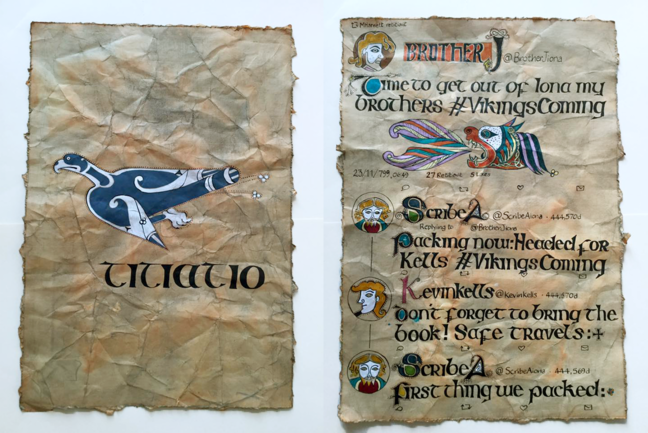 titiatio
BROTHER J @BrotherJiona
Time to get out of Iona my
brothers #VikingsComing
27 Retitiat 5 Likes
ScribeA @ScribeAiona
Replying to @BrotherJiona
Packing now: Headed for
Kells #VikingsComing
Kevinkells @kevinkells · 444,570d
Don't forget to bring the
book! Safe travels :+
ScribeA @ScribeAiona 444,569d
First thing we packed: